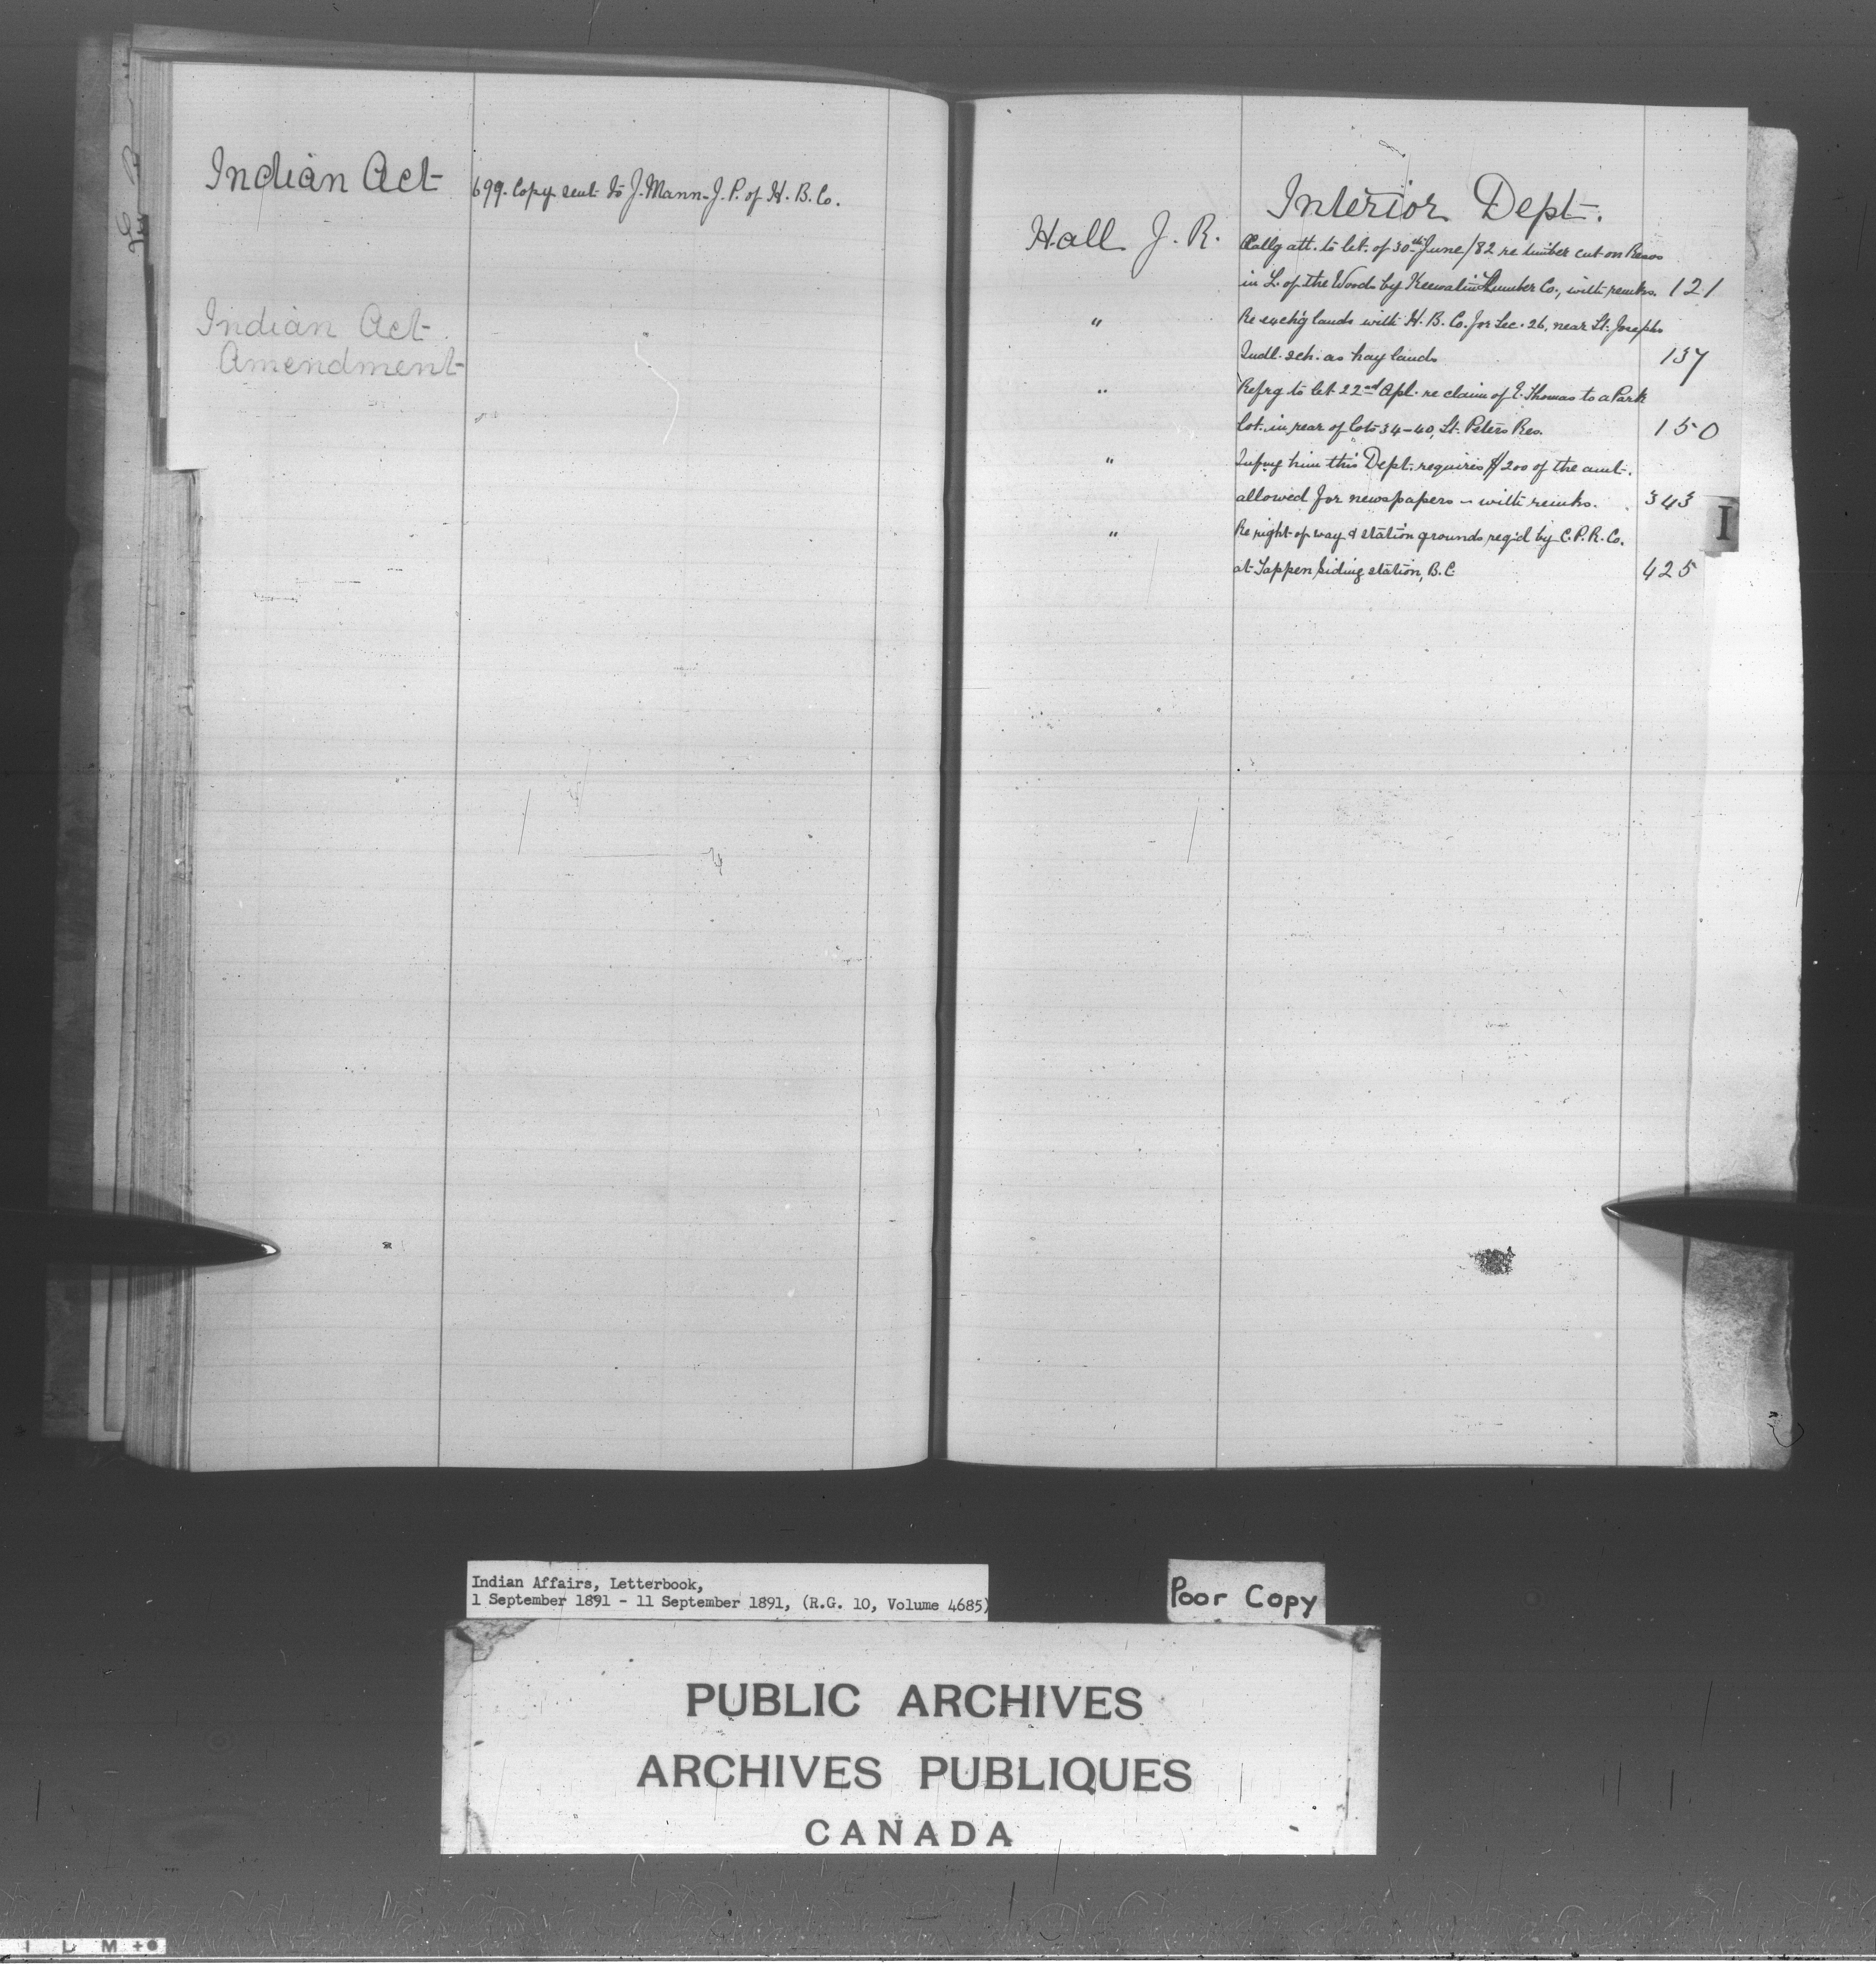 Indian Act 699. Copy sent to J. Mann J. P. of H. B. Co.
Indian Act
Amendment
Interior Dept.
Hall J. R. Callg att. to let. of 30th June/82 re timber cut on Resvs
in L. of the Woods by Keewatin Lumber Co., with remks. 121
" Re exch'g lands with H. B. Co. for Sec. 26, near St. Josephs
Indl. sch. as hay lands 137
" Refrg to let 22nd Apl. re claim of E. Thomas to a Park
lot in rear of lots 34-40, St. Peters Res. 150
" Infmg him this Dept. requires $200 of the amt.
allowed for newspapers - with remks. 343
" Re right of way & station grounds reqd by C. P. R. Co.
at Tappen Siding station, B. C. 425
I
Indian Affairs, Letterbook,
1 September 1891 - 11 September 1891, (R.G. 10, Volume 4685)
Poor Copy
PUBLIC ARCHIVES
ARCHIVES PUBLIQUES
CANADA